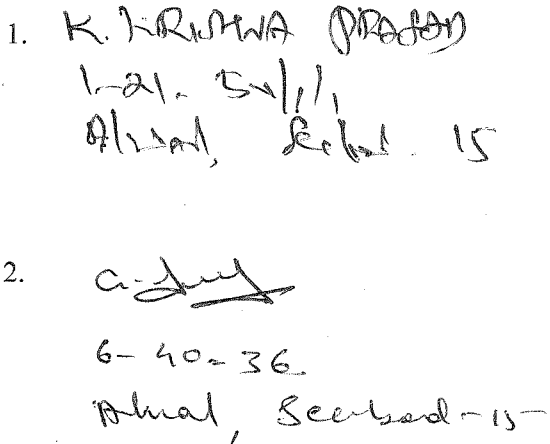 1. K. KRISHNA PRASAD
1-21-
Alwal, Sec'bad. 15
2.
6-40-36.
Alwal, Sec'bad-15